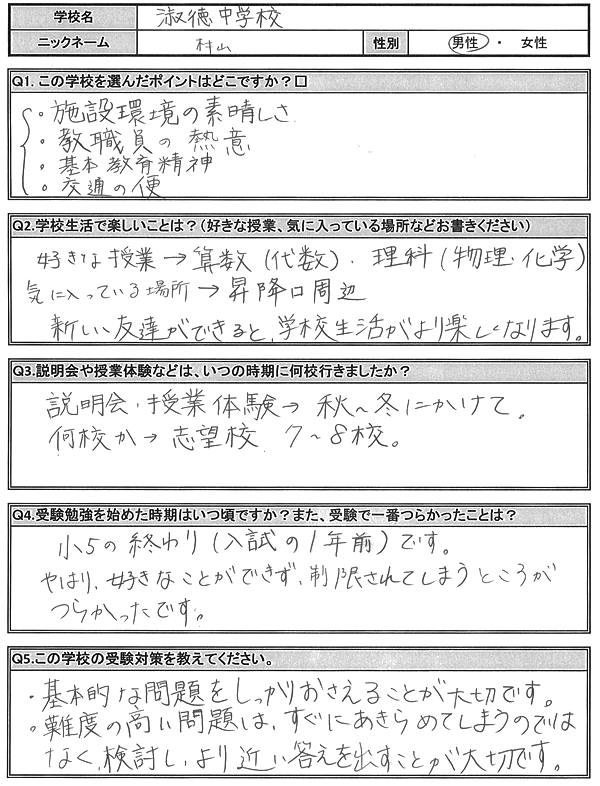 学校名 淑徳中学校
ニックネーム 村山 性別 男性 ・ 女性
Q1. この学校を選んだポイントはどこですか？□
・施設環境の素晴しさ
・教職員の熱意
・基本教育精神
・交通の便
Q2.学校生活で楽しいことは？（好きな授業、気に入っている場所などお書きください）
好きな授業→算数(代数)・理科(物理・化学)
気に入っている場所→昇降口周辺
新しい友達ができると、学校生活がより楽しくなります。
Q3.説明会や授業体験などは、いつの時期に何校行きましたか？
説明会・授業体験→秋～冬にかけて。
何校か→志望校 7～8校。
Q4.受験勉強を始めた時期はいつ頃ですか？また、受験で一番つらかったことは？
小5の終わり(入試の1年前)です。
やはり、好きなことができず、制限されてしまうところが
つらかったです。
Q5.この学校の受験対策を教えてください。
・基本的な問題をしっかりおさえることが大切です。
・難度の高い問題は、すぐにあきらめてしまうのでは
なく、検討し、より近い答えを出すことが大切です。